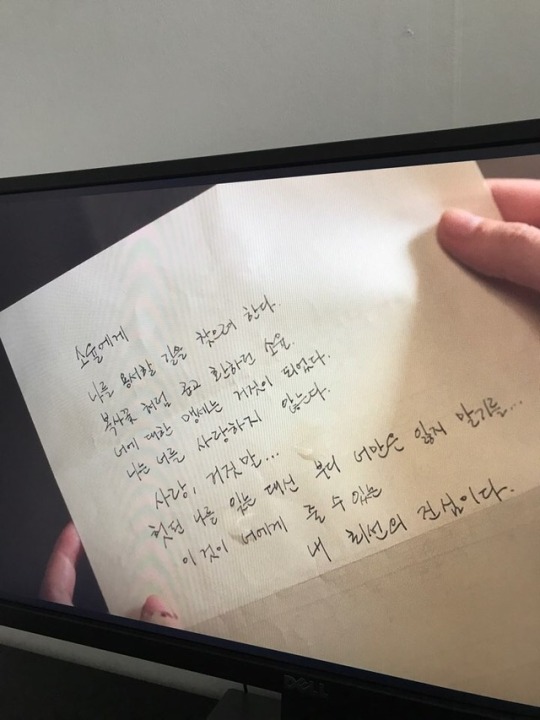 소율에게
나를 용서할 길을 찾으려 한다.
복사꽃 처럼 곱고 환하던 소율.
너에 대한 맹세는 거짓이 되었다.
나는 너를 사랑하지 않는다.
사랑, 거짓말...
헛된 나를 잃는 대신 부디 너만은 잃지 말기를...
이것이 너에게 줄 수 있는
내 최선의 진심이다.
DELL